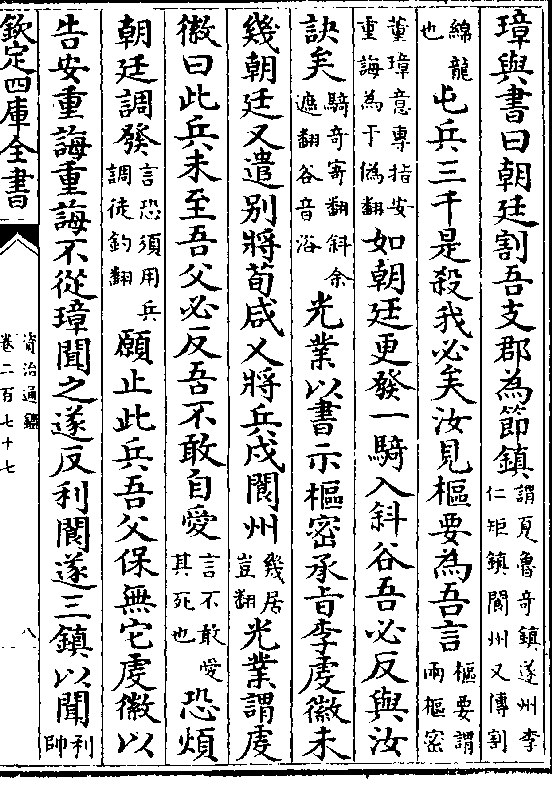 璋與書曰朝廷割吾支郡為節鎮謂夏魯奇鎮遂州李仁矩鎮閬州又傳割
綿龍也屯兵三千是殺我必矣汝見樞要為吾言樞要謂兩樞密
董璋意專指安重誨為于偽翻如朝廷更發一騎入斜谷吾必反與汝
訣矣騎奇寄翻斜余遮翻谷音浴光業以書示樞密承旨李虔徽未
幾朝廷又遣別將荀咸乂將兵戍閬州幾居豈翻光業謂虔
徽曰此兵未至吾父必反吾不敢自愛言不敢愛其死也恐煩
朝廷調發言恐須用兵調徒釣翻願止此兵吾父保無它虔徽以
告安重誨重誨不從璋聞之遂反利閬遂三鎮以聞利帥
欽定四庫全書
資治通鑑
卷二百七十七
八